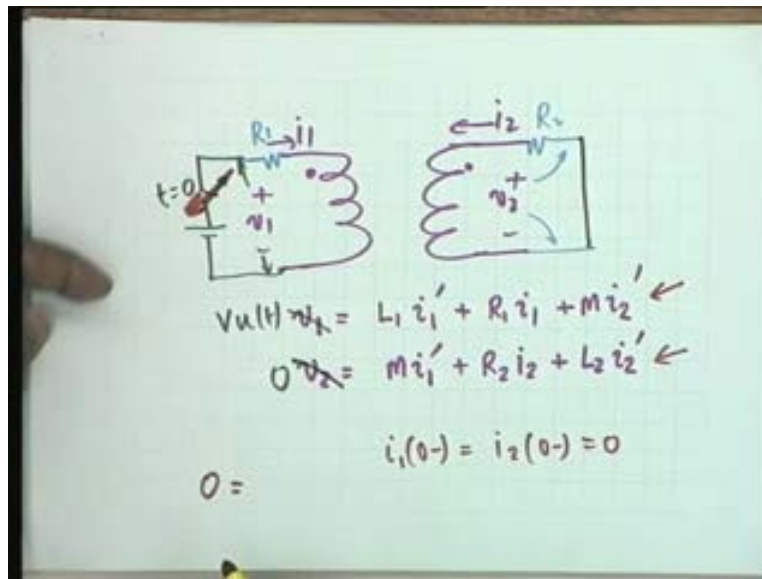 R₁ i₁ i₂ R₂
t=0 + v₁ - + v₂ -
Vu(t) v₁ = L₁ i₁' + R₁ i₁ + M i₂'
0 v₂ = M i₁' + R₂ i₂ + L₂ i₂'
i₁(0-) = i₂(0-) = 0
0 =